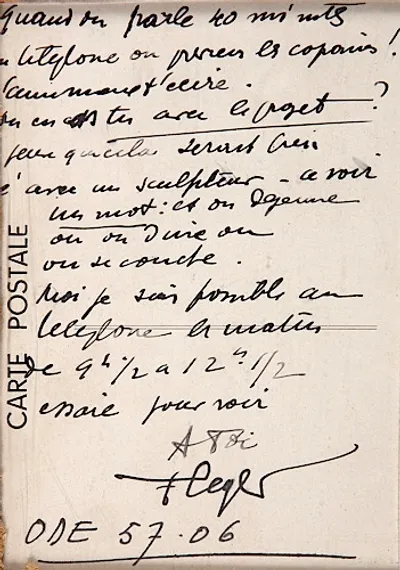 Quand on parle 40 minutes
telephone on prévient les copains !
t'ecrire .
en es tu avec le projet ?
serait bien
avec un sculpteur - a voir
un mot : et on dejeune
ou on Dine ou
on se couche .
Moi je suis possible au
telephone le matin
de 9h 1/2 a 12h 1/2
essaie pour voir
A Toi
F Leger
ODE 57.06
CARTE POSTALE